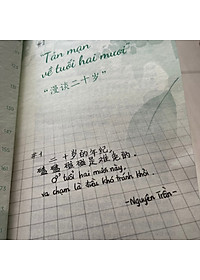 #1
"Tản mạn
về tuổi hai mươi"
"漫谈二十岁"
#1
二十岁的年纪,
磕磕碰碰是难免的.
Ở tuổi hai mươi này,
va chạm là điều khó tránh khỏi
- Nguyên Trần -